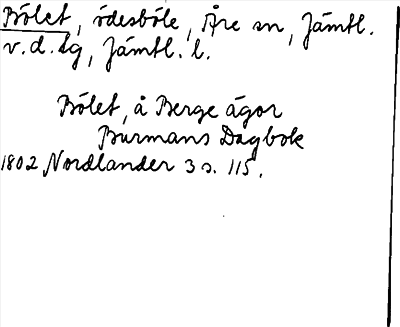 Bölet, ödesböle, Åre sn, Jämtl.
v.d. tg, Jämtl. l.
Bölet, å Berge ägor
Burmans Dagbok
1802 Nordlander 3 s. 115.